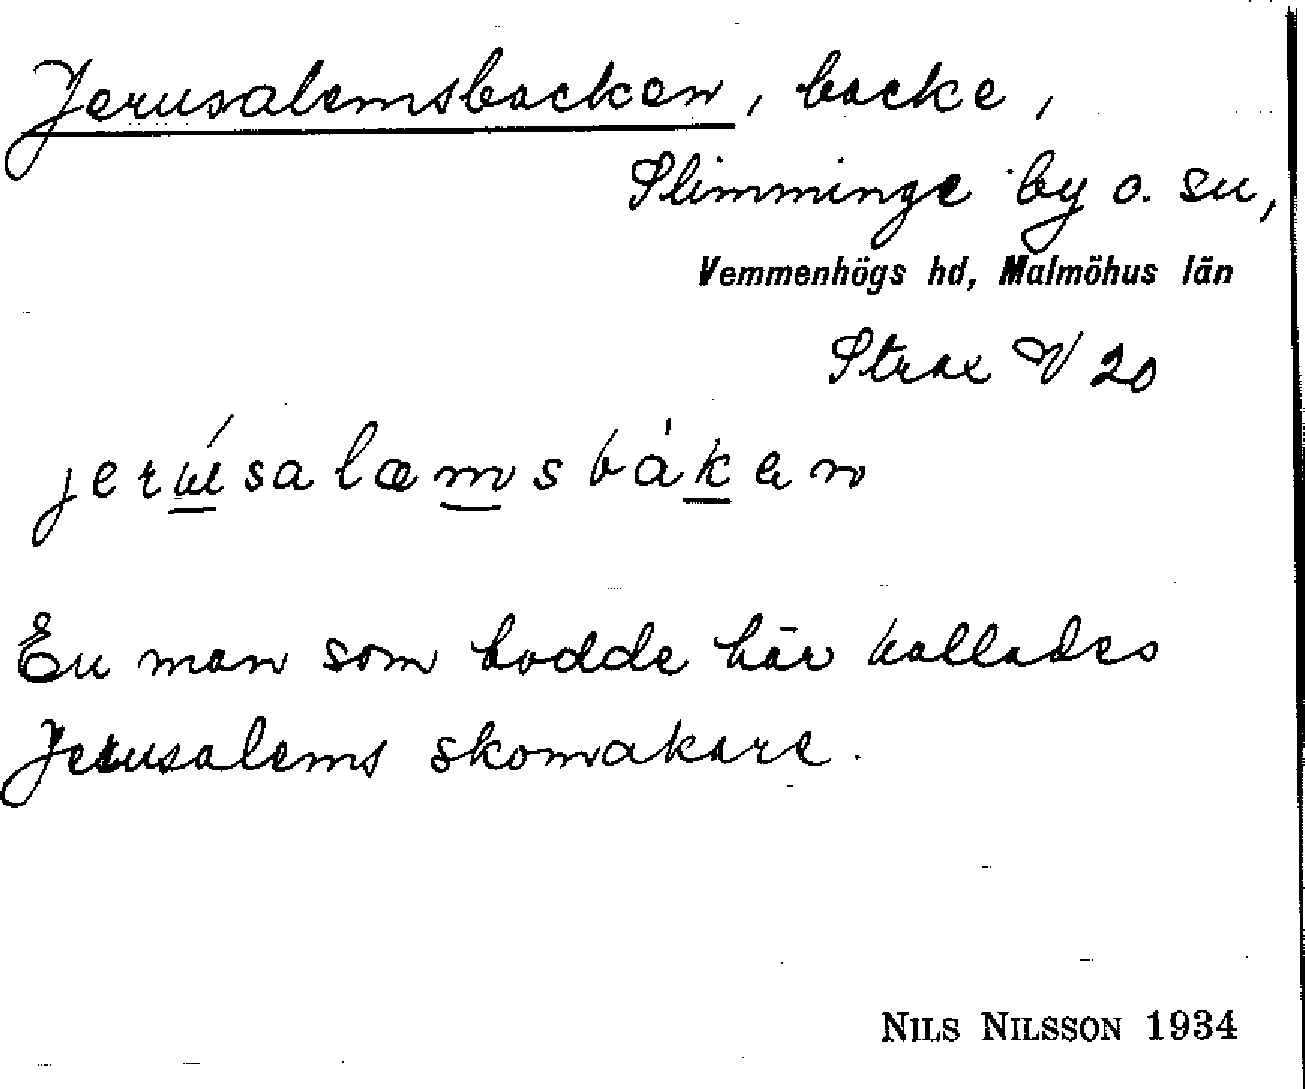 Jerusalemsbacken, backe,
Slimminge by o. sn,
Vemmenhögs hd, Malmöhus län
Strax V 20
jerúsalæmsbàken
En man som bodde här kallades
Jerusalems skomakare.
NILS NILSSON 1934